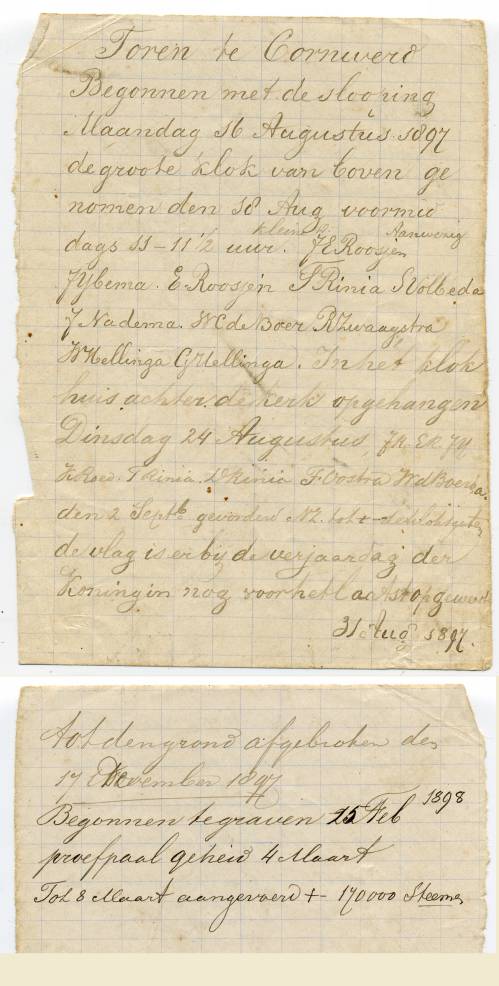 Toren te Cornwerd
Begonnen met de slooping
Maandag 16 Augustus 1897
de groote klok van boven ge
nomen den 18 Aug voormid
kleine Aanwezig
dags 11 - 11 1/2 uur. J E Roosjen
J Ybema. E Roosjen T Rinia S Volbeda
J Nadema. W C de Boer R Zwaagstra
W Hellinga C Hellinga. In het klok
huis achter de kerk opgehangen
Dinsdag 24 Augustus J R. E R. J Y.
T Rinia. Rinia F Oostra W d Boer
den 2 Septb geworden tot +-
de vlag is er bij de verjaardag der
Koningin nog voor het laatst op
31 Aug 1897.
tot den grond afgebroken den
17 November 1897
Begonnen te graven 15 Feb 1898
proefpaal geheid 4 Maart
Tot 8 Maart aangevoerd +- 170000 Steenen